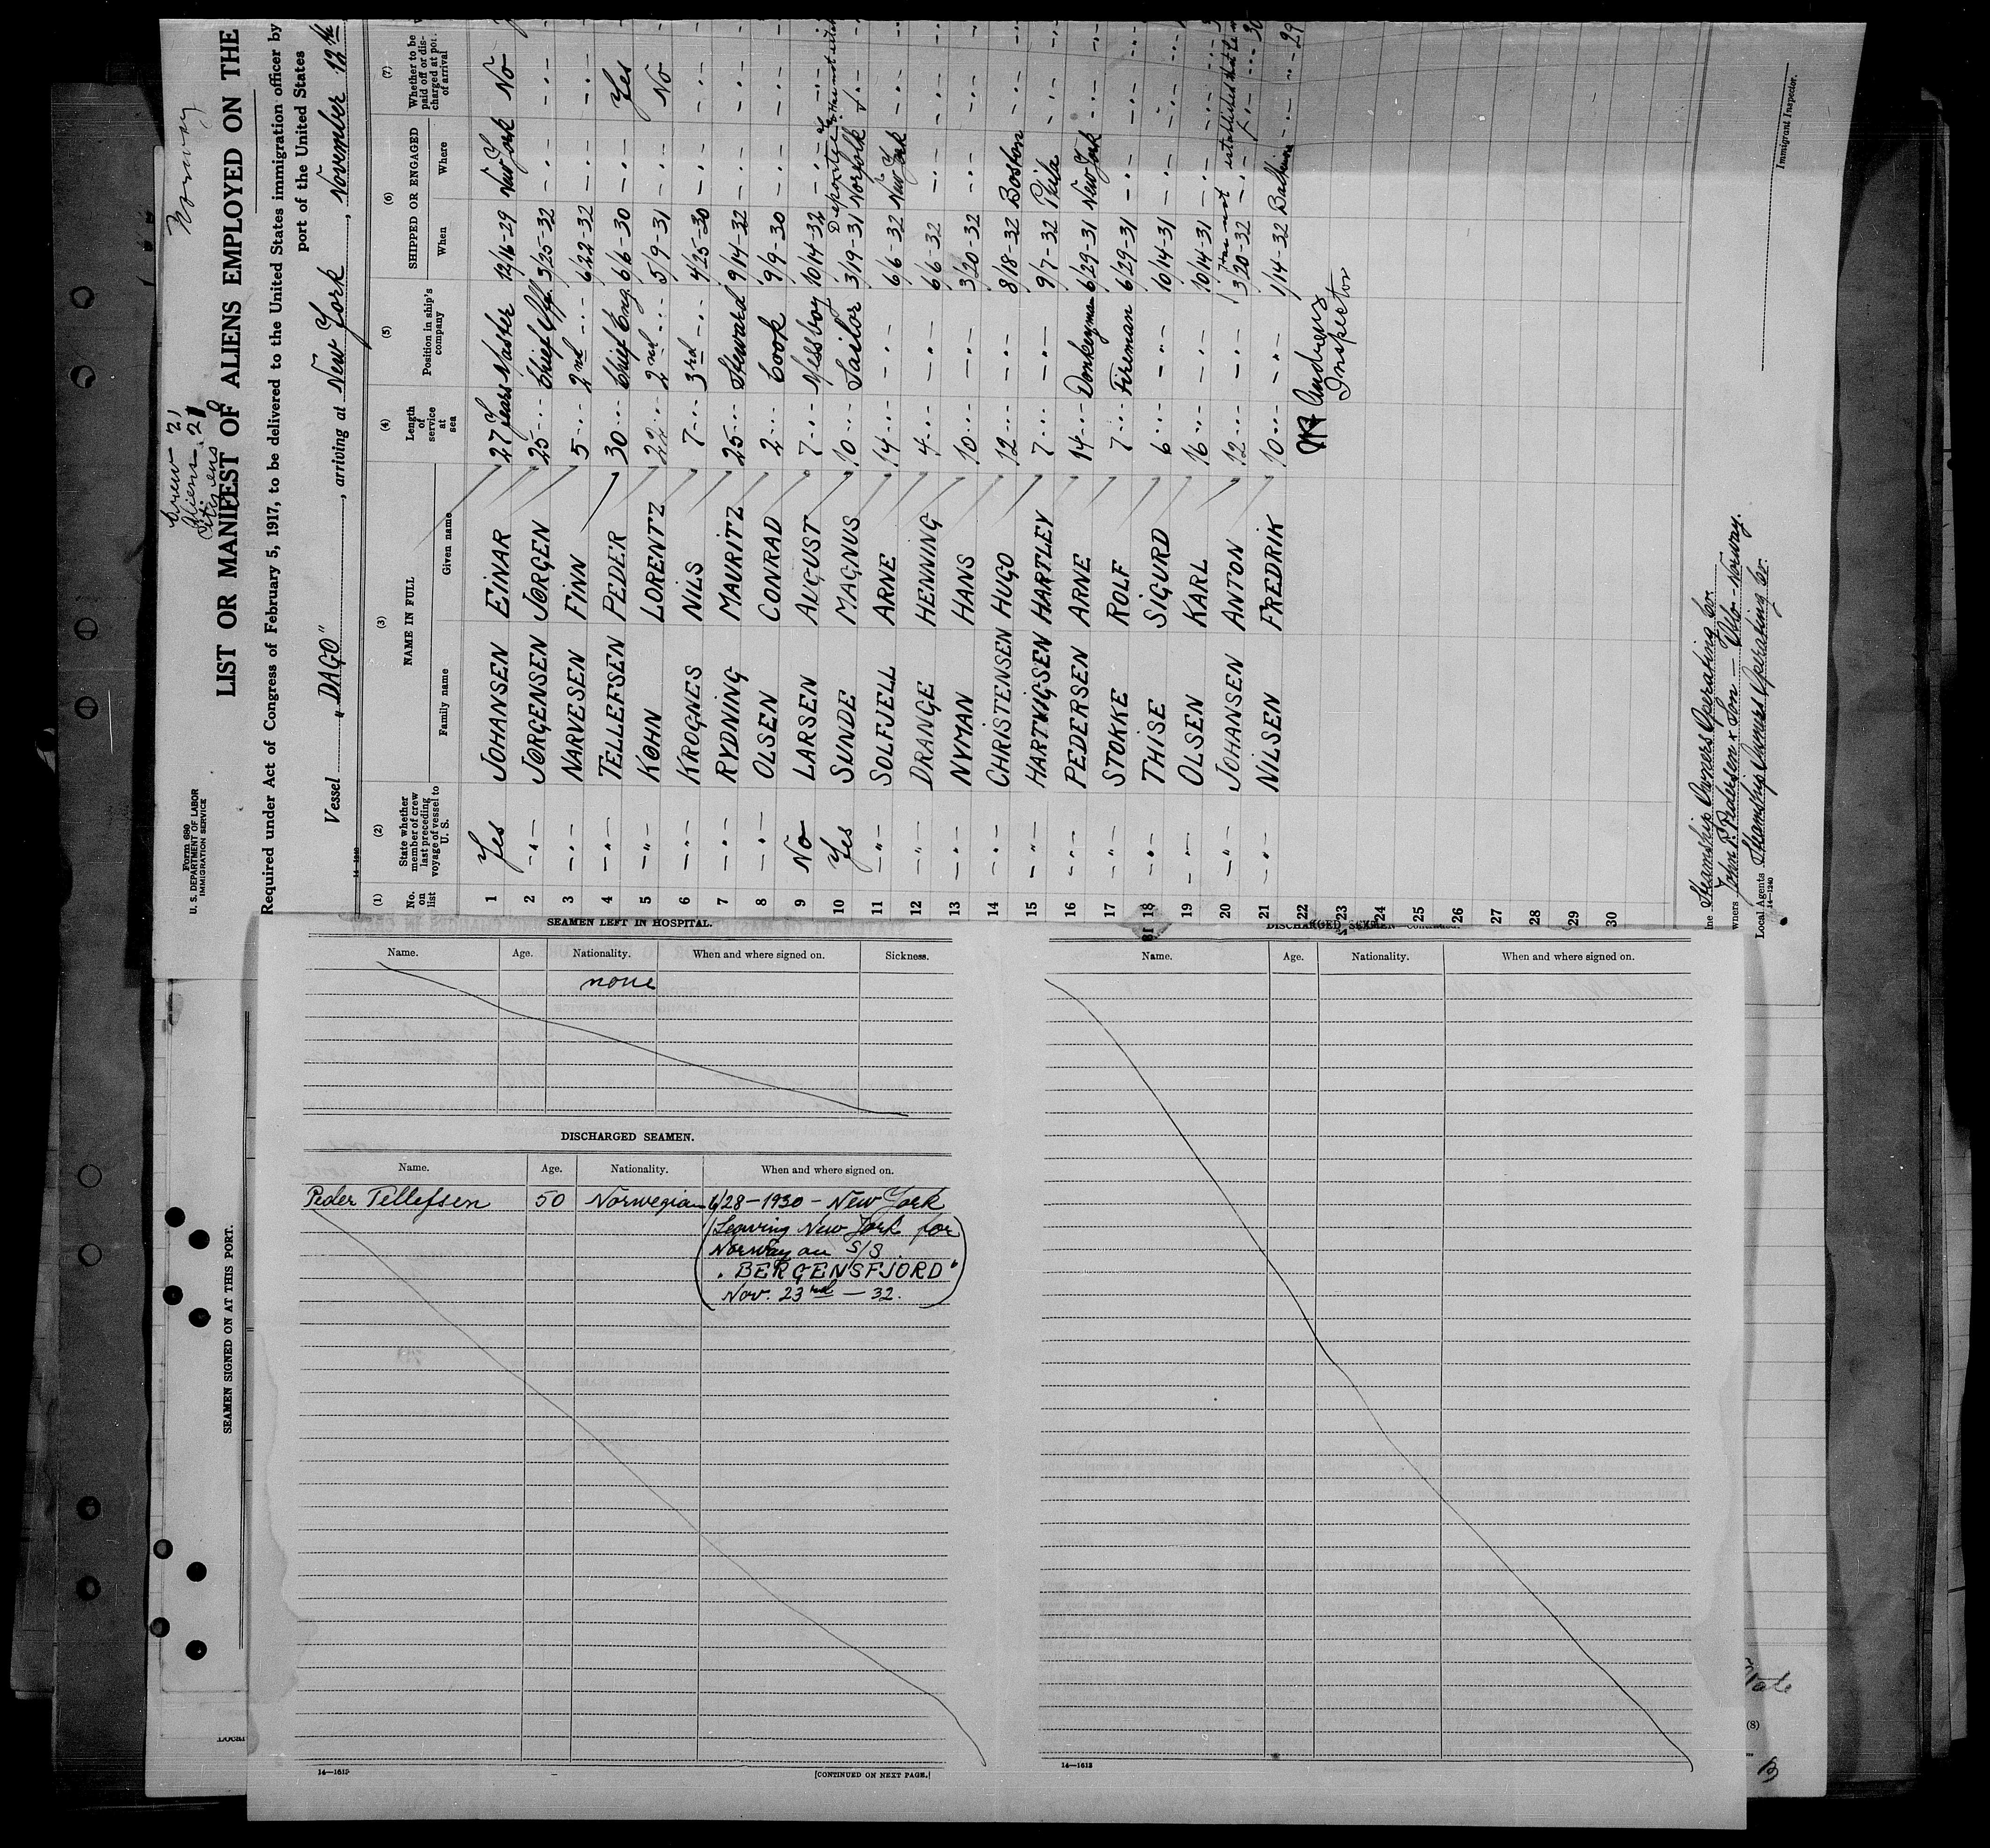 Norway
Crew 21
Aliens 21
Citizens 0
Form 680
U. S. DEPARTMENT OF LABOR
IMMIGRATION SERVICE
LIST OR MANIFEST OF ALIENS EMPLOYED ON THE
Required under Act of Congress of February 5, 1917, to be delivered to the United States immigration officer by
port of the United States
Vessel "DAGO", arriving at New York, November 12th
14-1240
(1) (2) (3) (4) (5) (6) (7)
No. on list
State whether member of crew last preceding voyage of vessel to U. S.
NAME IN FULL
Family name Given name
Length of service at sea
Position in ship's company
SHIPPED OR ENGAGED
When Where
Whether to be paid off or discharged at port of arrival
1 Yes JOHANSEN EINAR 27 Years Master 12/16-29 New York No
2 -"- JØRGENSEN JØRGEN 25 -"- Chief Off. 3/25-32 -"- -"-
3 -"- NARVESEN FINN 5 -"- 2nd -"- 6/22-32 -"- -"-
4 -"- TELLEFSEN PEDER 30 -"- Chief Eng. 6/6-30 -"- Yes
5 -"- KØHN LORENTZ 22 -"- 2nd -"- 5/9-31 -"- No
6 -"- KROGNES NILS 7 -"- 3rd -"- 4/25-30 -"- -"-
7 -"- RYDNING MAURITZ 25 -"- Steward 9/14-32 -"- -"-
8 -"- OLSEN CONRAD 2 -"- Cook 9/9-30 -"- -"-
9 No LARSEN AUGUST 7 -"- Messboy 10/14-32 -"- -"-
10 Yes SUNDE MAGNUS 10 -"- Sailor 3/19-31 Norfolk -"-
11 -"- SOLFJELL ARNE 14 -"- -"- 6/6-32 New York -"-
12 -"- DRANGE HENNING 4 -"- -"- 6/6-32 -"- -"-
13 -"- NYMAN HANS 10 -"- -"- 3/20-32 -"- -"-
14 -"- CHRISTENSEN HUGO 12 -"- -"- 8/18-32 Boston -"-
15 -"- HARTVIGSEN HARTLEY 7 -"- -"- 9/7-32 Phila -"-
16 -"- PEDERSEN ARNE 14 -"- Donkeyman 6/29-31 New York -"-
17 -"- STOKKE ROLF 7 -"- Fireman 6/29-31 -"- -"-
18 -"- THISE SIGURD 6 -"- -"- 10/14-31 -"- -"-
19 -"- OLSEN KARL 16 -"- -"- 10/14-31 -"- -"-
20 -"- JOHANSEN ANTON 12 -"- -"- 3/20-32 -"- -"-
21 -"- NILSEN FREDRIK 10 -"- -"- 1/14-32 -"-
22
23
24
25
26
27
28
29
30
Andrews
Inspector
Steamship Owners Operating Co.
John P. Pedersen & Son — Oslo - Norway.
Local Agents Steamship Owners Operating Co.
14-1240
Immigrant Inspector.
SEAMEN SIGNED ON AT THIS PORT.
SEAMEN LEFT IN HOSPITAL.
Name. Age. Nationality. When and where signed on. Sickness.
none
DISCHARGED SEAMEN.
Name. Age. Nationality. When and where signed on.
Peder Tellefsen 50 Norwegian 6/28-1930 - New York
(Leaving New York for
Norway on S/S
"BERGENSFJORD"
Nov. 23rd - 32.)
14—1613
[CONTINUED ON NEXT PAGE.]
DISCHARGED SEAMEN—Continued.
Name. Age. Nationality. When and where signed on.
14—1613
(8)